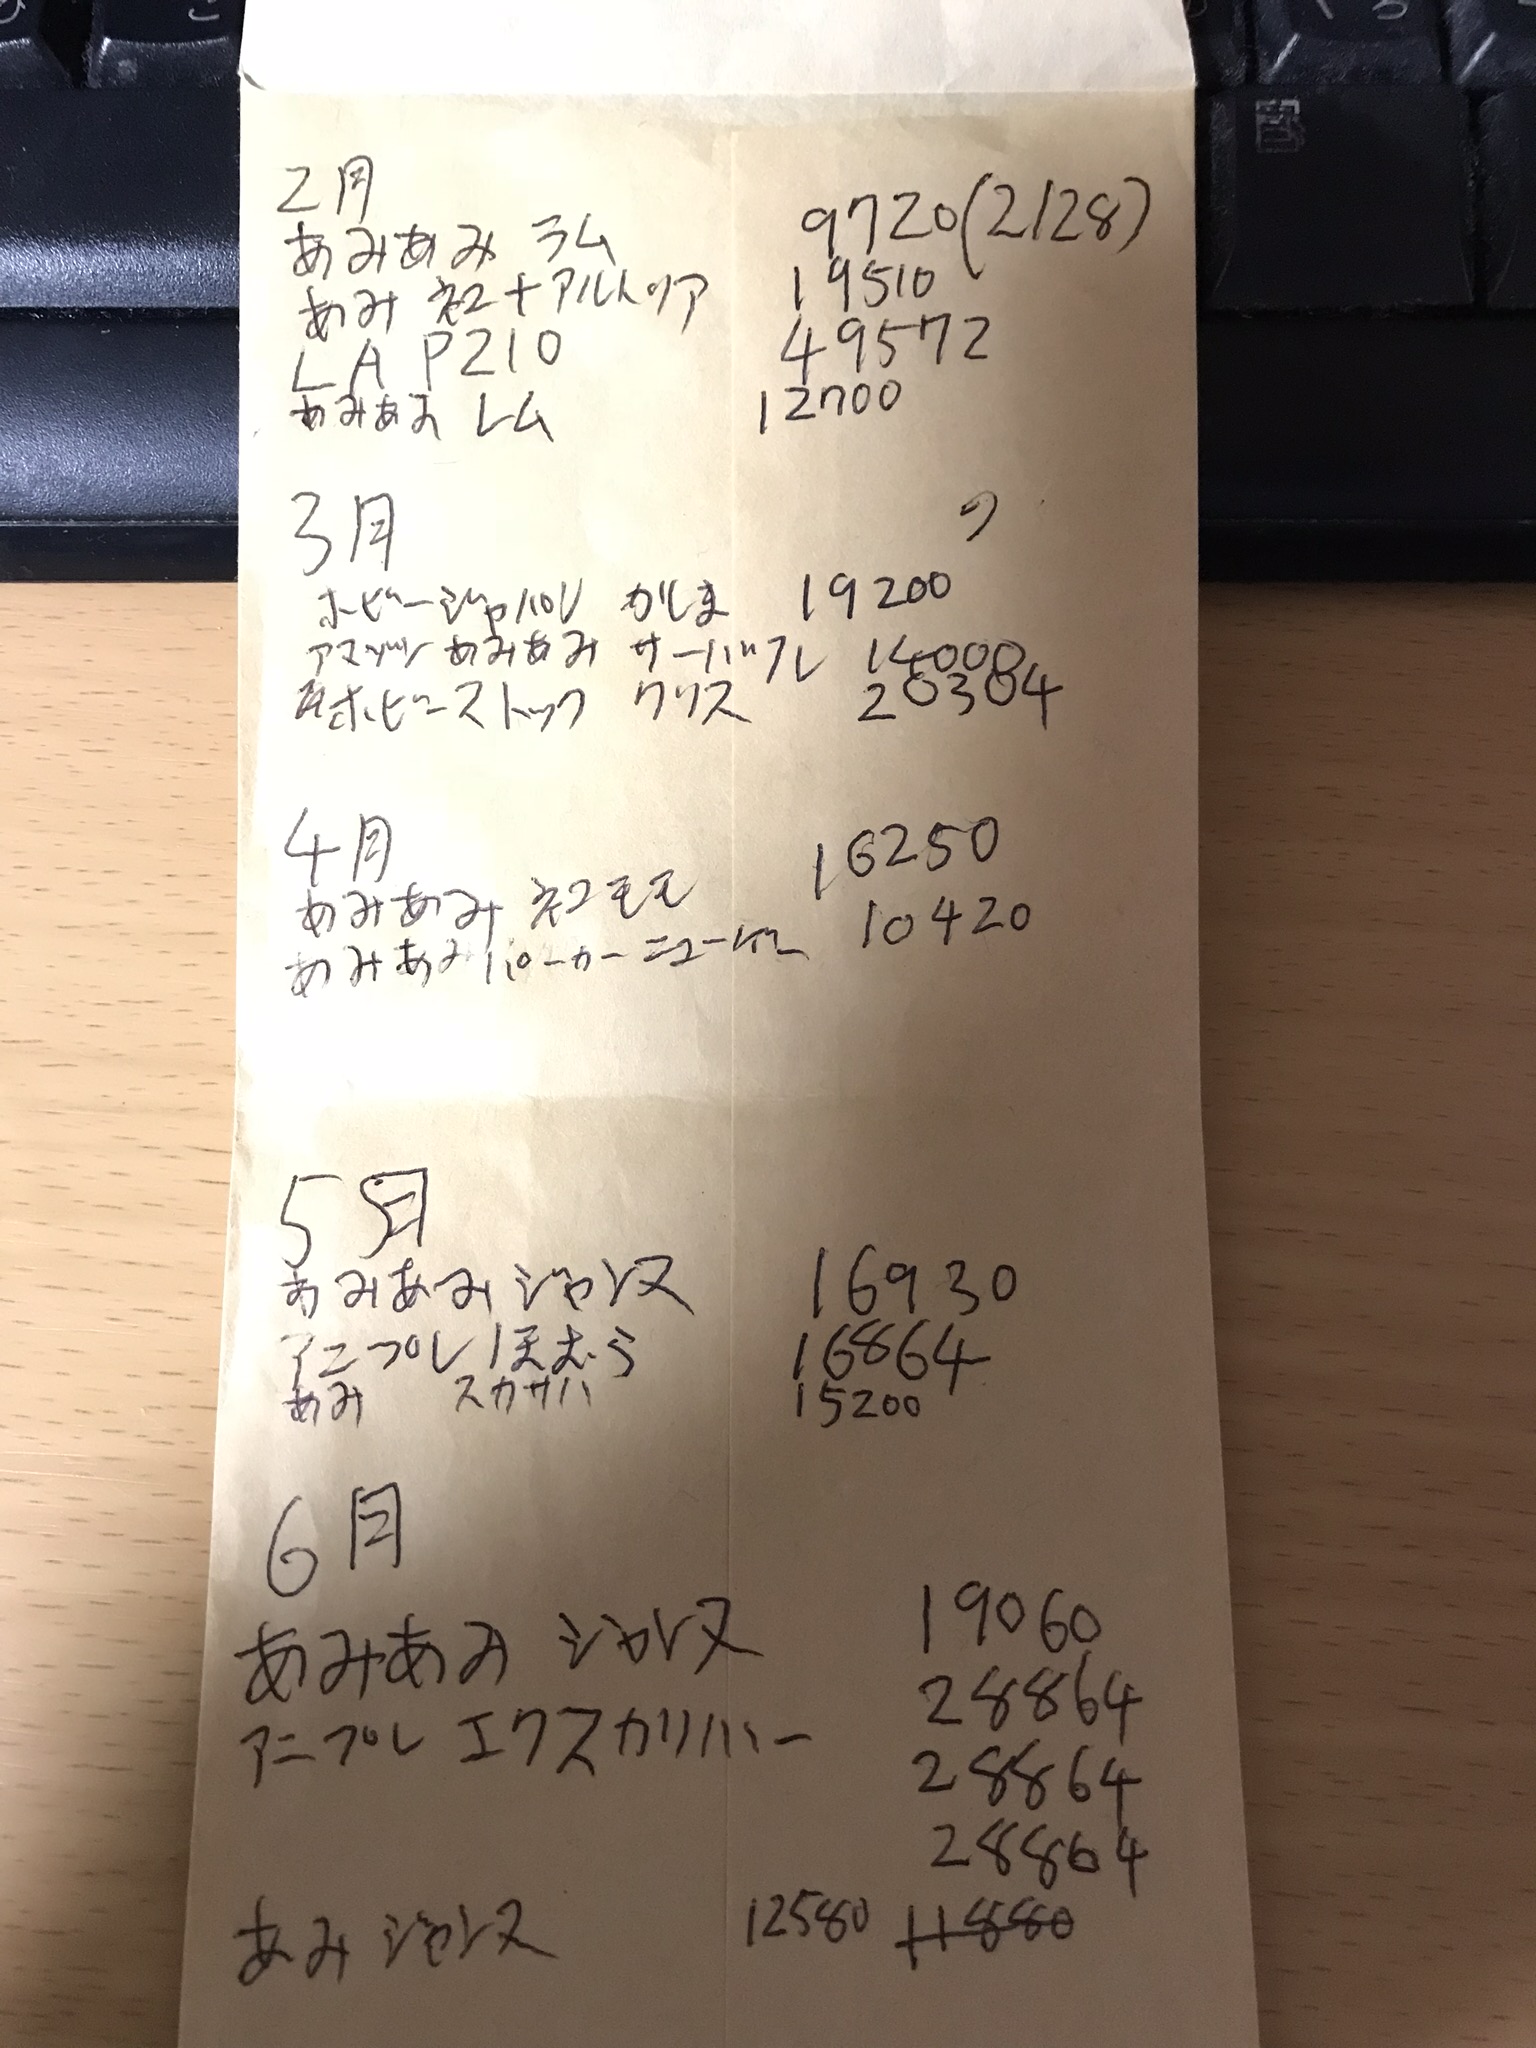 2月
あみあみ ラム 9720(2/28)
あみ ネコ+アルトリア 19510
LA P210 49572
あみあみ レム 12700
3月
ホビージャパン かしま 19200
アマゾン あみあみ サーバル 14000
ホビーストック クリス 20304
4月
あみあみ ネコモモ 16250
あみあみ パーカー 10420
5月
あみあみ ジャンヌ 16930
アニプレ ほむら 16864
あみ スカサハ 15200
6月
あみあみ ジャンヌ 19060
アニプレ エクスカリバー 28864
28864
28864
あみ ジャンヌ 12580 11880